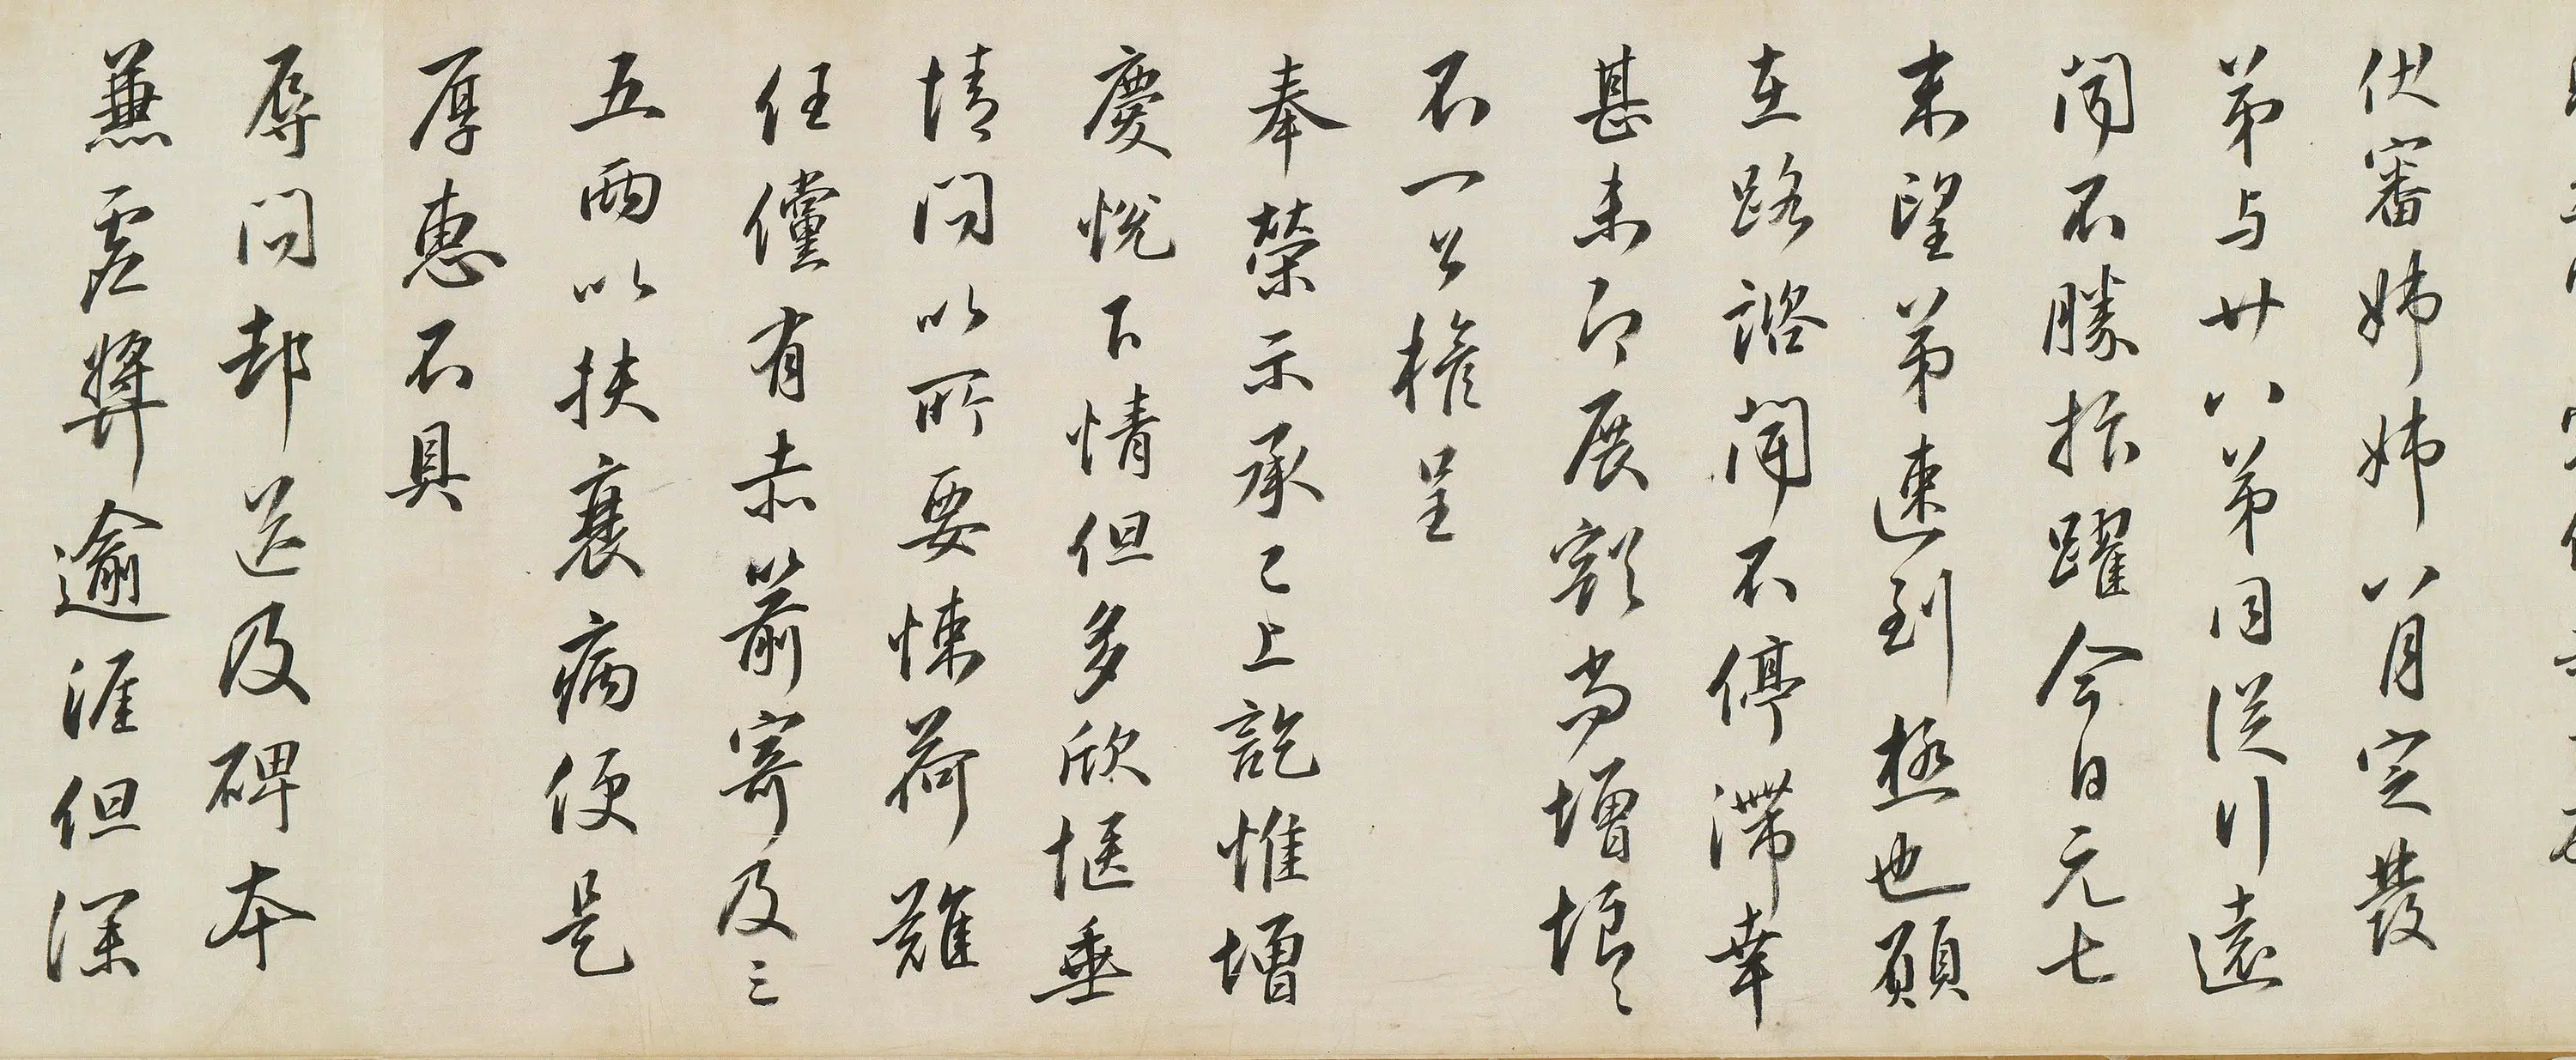 伏審姊姊八月定發
弟与廿八弟同從行遠
聞不勝抃躍今日元七
来望弟速到極也願
在路諧聞不停滯幸
甚未即展豁尚增悒〻
不一公權呈
奉榮示承已上訖惟增
慶悅下情但多欣愜垂
情問以所要悚荷難
任儻有赤箭寄及三
五兩以扶衰病便是
厚惠不具
辱問却送及碑本
兼虛獎逾涯但深